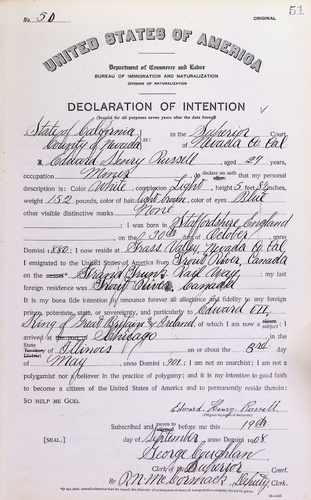 No. 50
ORIGINAL
51
UNITED STATES OF AMERICA
Department of Commerce and Labor
BUREAU OF IMMIGRATION AND NATURALIZATION
DIVISION OF NATURALIZATION
DECLARATION OF INTENTION
(Invalid for all purposes seven years after the date hereof)
State of California
County of Nevada ss: in the Superior Court
of Nevada Co. Cal
I, Edward Henry Russell, aged 27 years,
occupation Miner, do declare on oath that my personal
description is: Color White, complexion Light, height 5 feet inches,
weight 152 pounds, color of hair light brown, color of eyes Blue
other visible distinctive marks None
I was born in Staffordshire England
on the 30th day of October, anno
Domini 1880; I now reside at Grass Valley Nevada Co. Cal
I emigrated to the United States of America from Trout River, Canada
on the Grand Trunk Rail Way; my last
foreign residence was Trout River, Canada
It is my bona fide intention to renounce forever all allegiance and fidelity to any foreign
prince, potentate, state, or sovereignty, and particularly to Edward VII,
King of Great Britain & Ireland, of which I am now a subject; I
arrived at the of Chicago, in the
State of Illinois on or about the 3rd day
of May, anno Domini 1901; I am not an anarchist; I am not a
polygamist nor a believer in the practice of polygamy; and it is my intention in good faith
to become a citizen of the United States of America and to permanently reside therein:
SO HELP ME GOD.
Edward Henry Russell
(Original signature of declarant)
Subscribed and sworn to before me this 19th
[SEAL.] day of September, anno Domini 1908
George Coughlan
Clerk of the Superior Court.
By McCormack, Deputy Clerk.